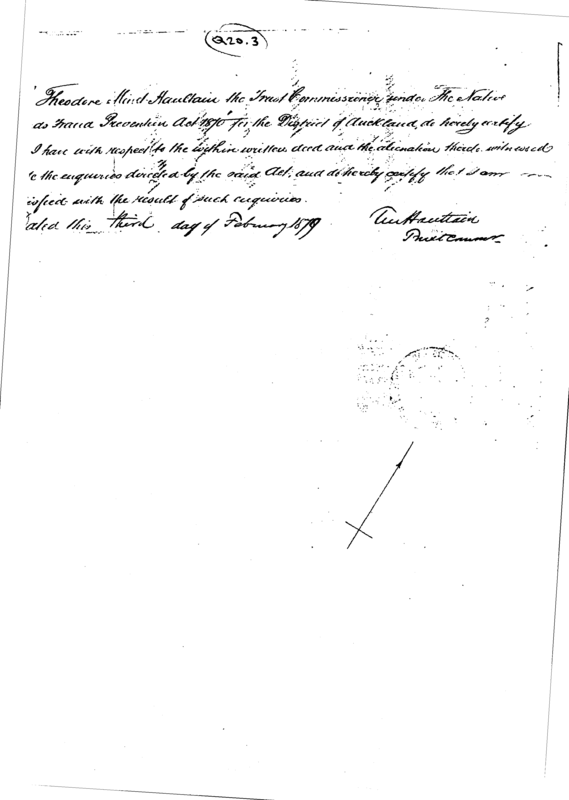 Q20.3
Theodore Minet Haultain the Trust Commissioner under The Native
ds Fraud Prevention Act 1870 for the District of Auckland, do hereby certify
I have with respect to the within written deed and the alienation thereby witnessed
e the enquiries directed by the said Act, and do hereby certify that I am
isfied with the result of such enquiries.
ated this third day of February 1879
TM Haultain
Trust Commr